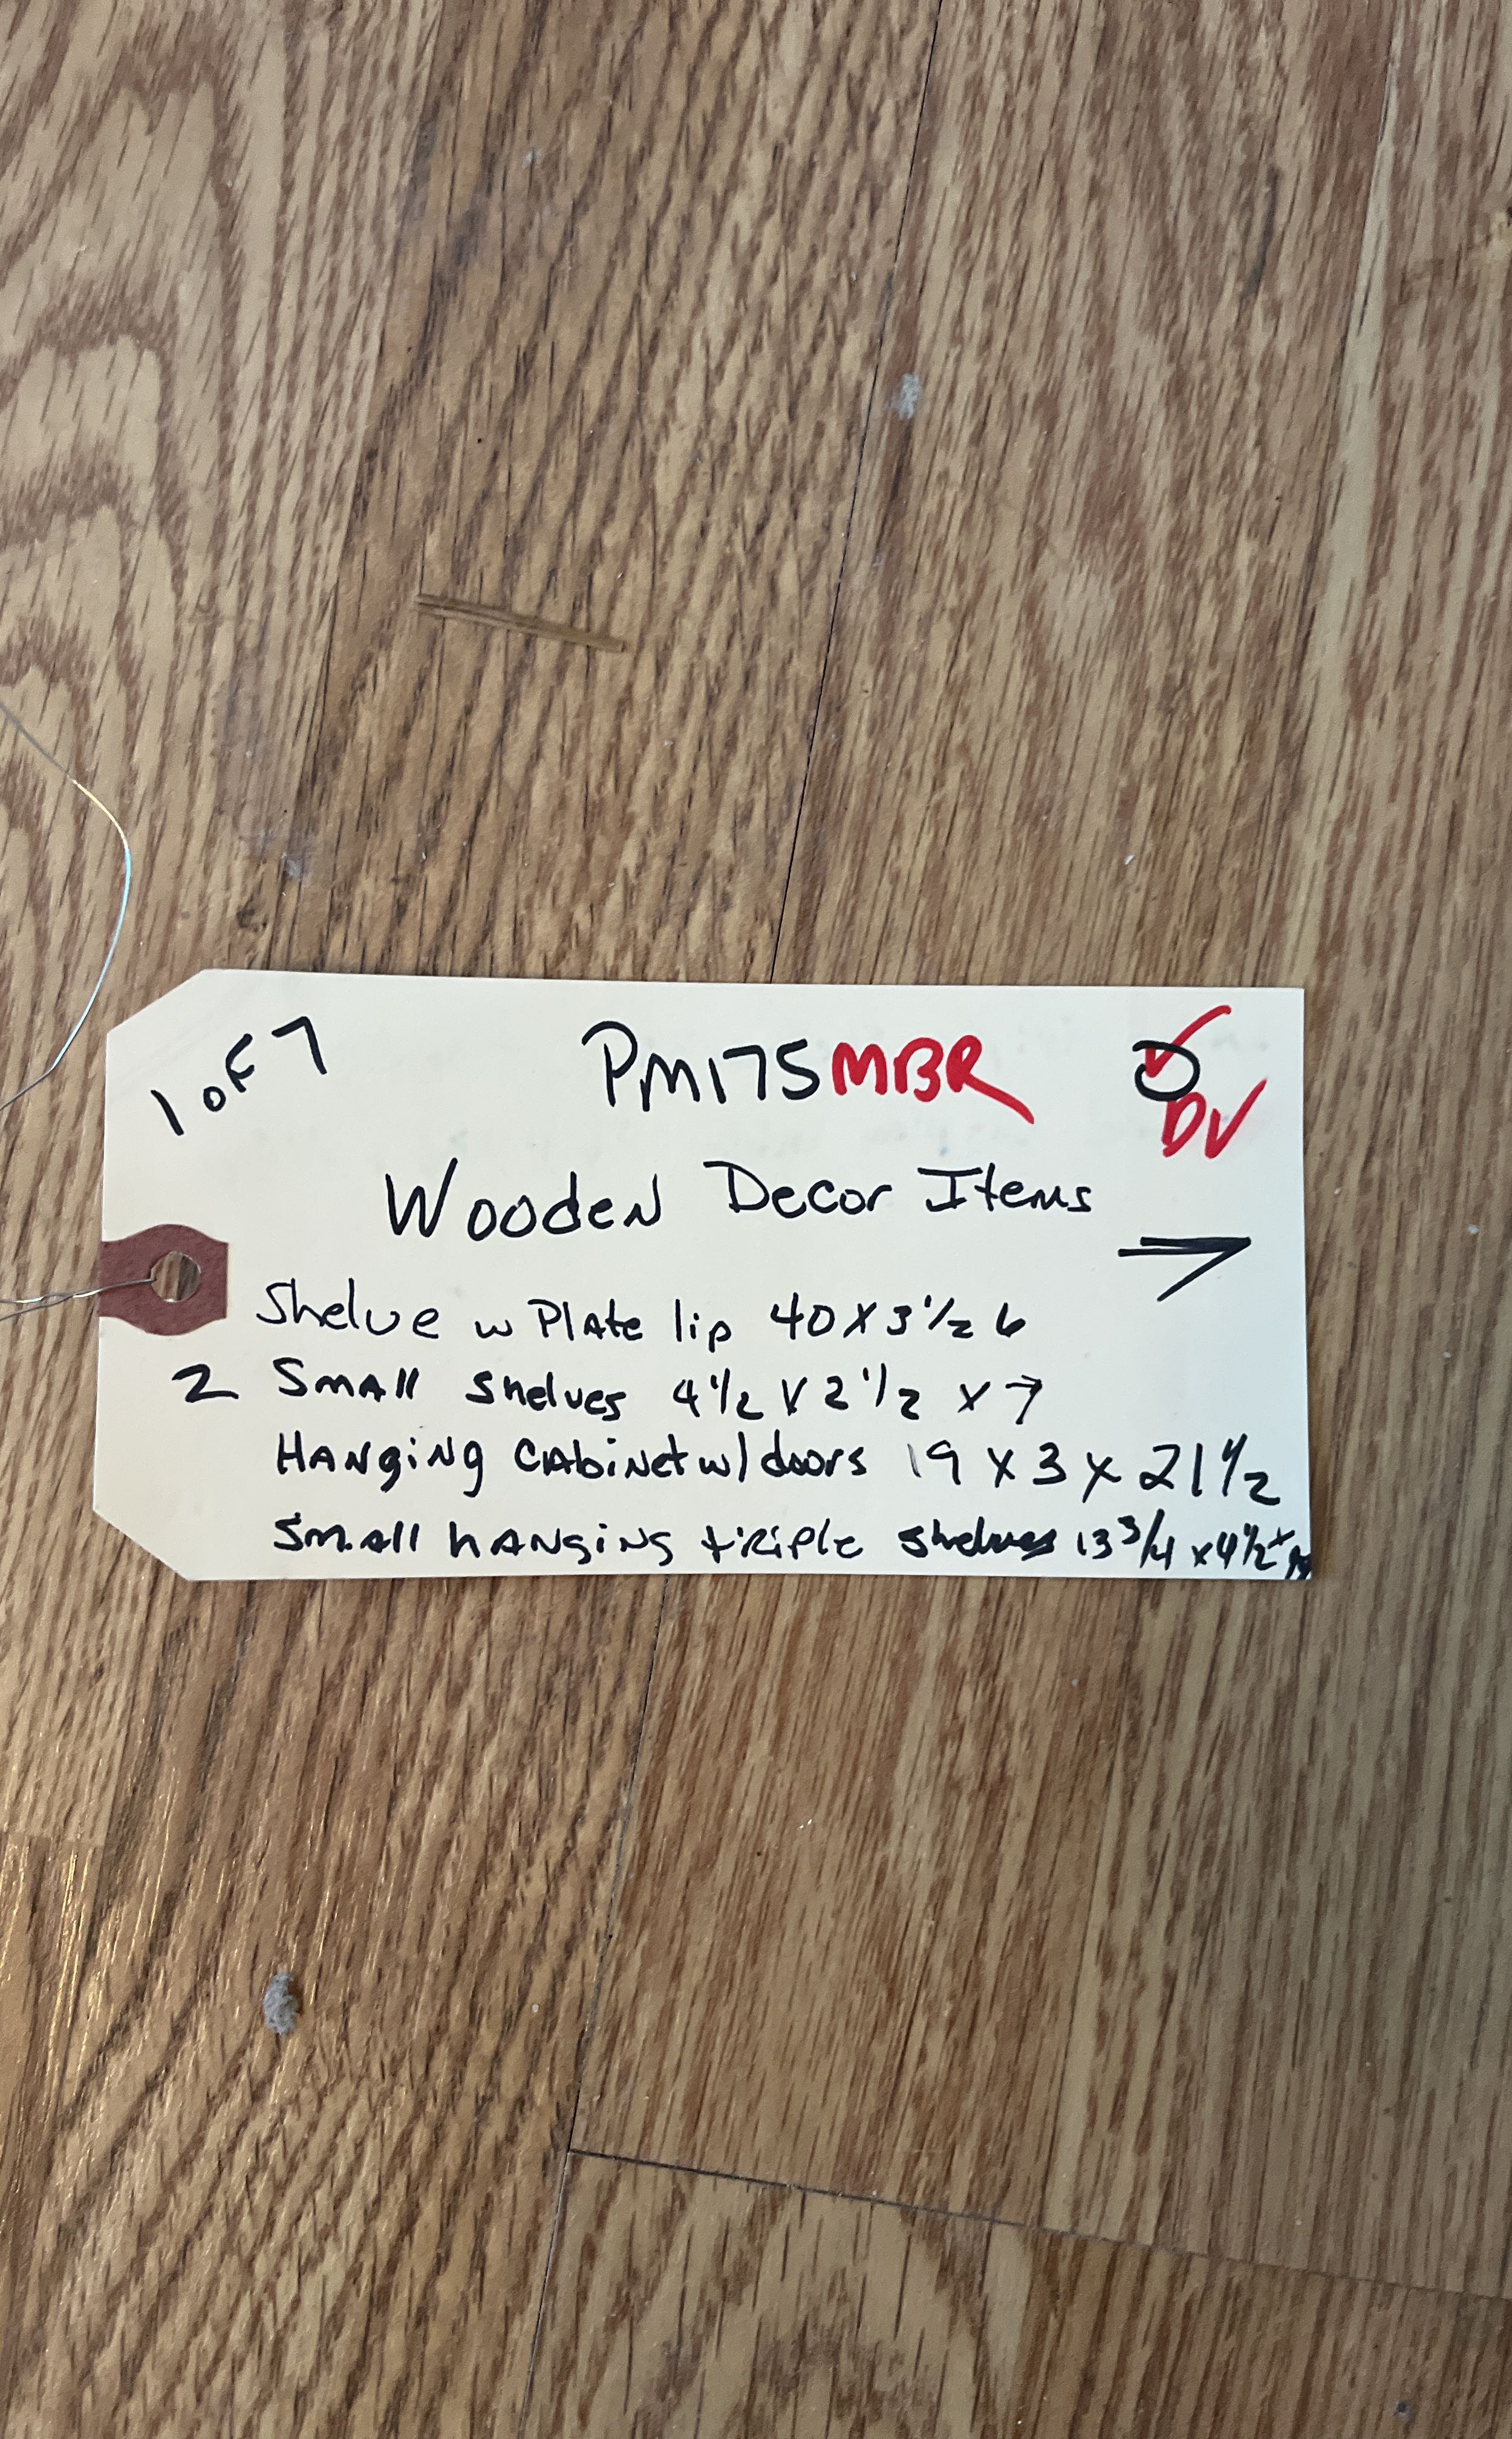 1 OF 7
PM175 MBR
DV
Wooden Decor Items
Shelve w Plate lip 40 x 3 1/2 6
2 Small Shelves 4 1/2 x 2 1/2 x 7
Hanging Cabinet w/ doors 19 x 3 x 21 1/2
Small hanging triple shelves 13 3/4 x 4 1/2 x